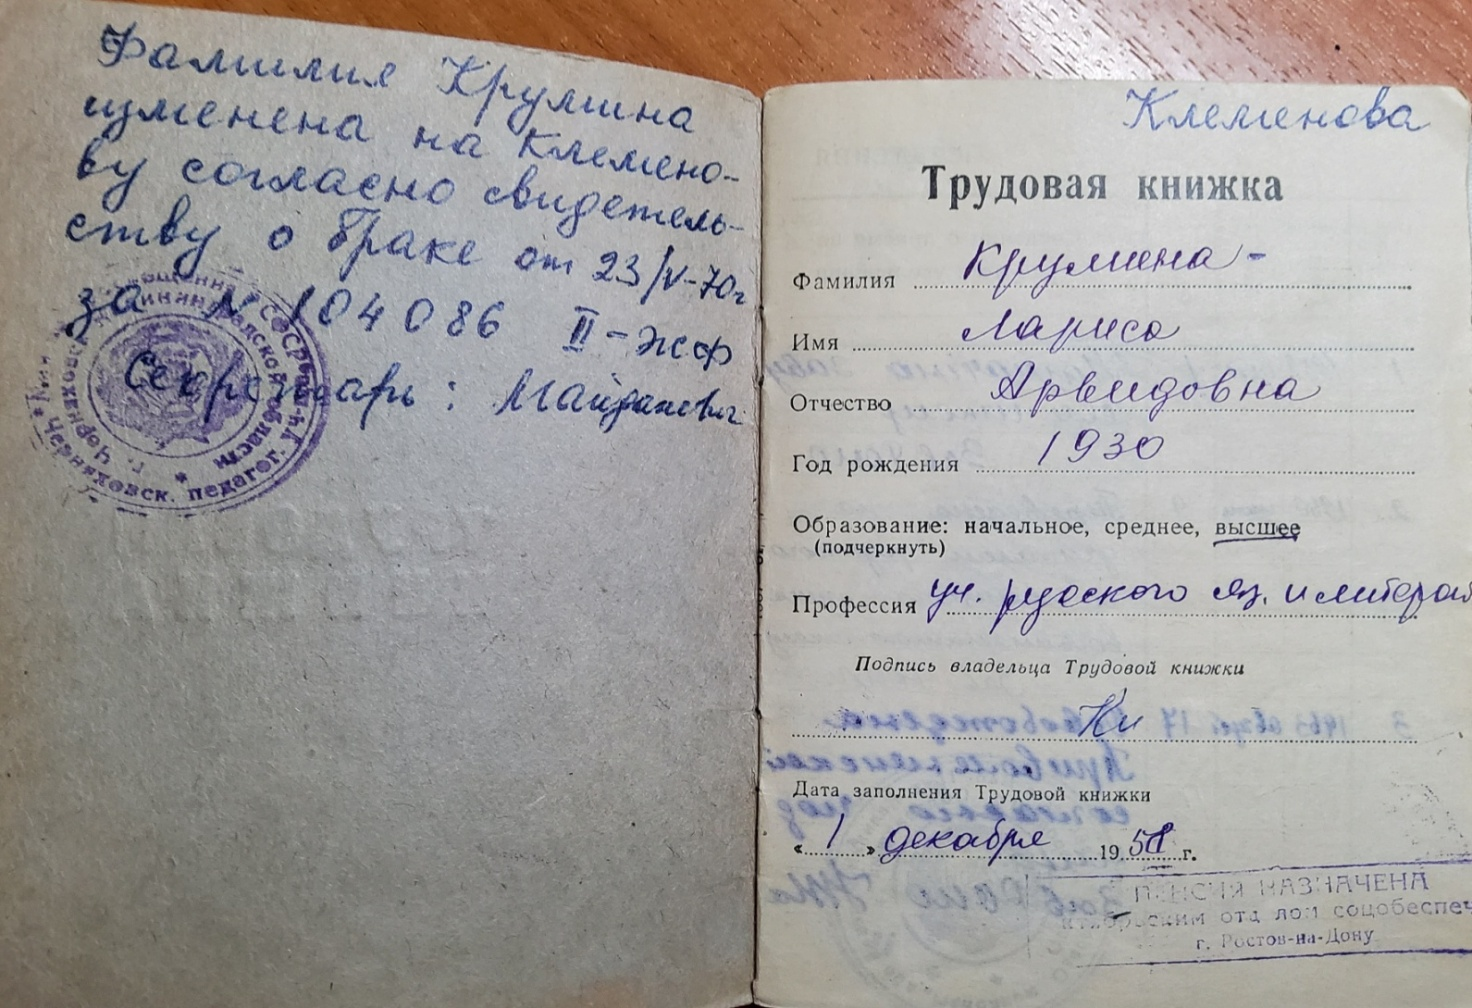 Фамилия Крумина
изменена на Клемено-
ву согласно свидетель-
ству о браке от 23/V-70г
за N 104086 II-жф
Секретарь: Майданевич
Клеменова
Трудовая книжка
Фамилия Крумина-
Имя Лариса
Отчество Арвидовна
Год рождения 1930
Образование: начальное, среднее, высшее
(подчеркнуть)
Профессия уч. русского яз. и литерат
Подпись владельца Трудовой книжки
Дата заполнения Трудовой книжки
«1» декабря 195 г.
ПЕНСИЯ НАЗНАЧЕНА
отделом соцобеспеч
г. Ростов-на-Дону